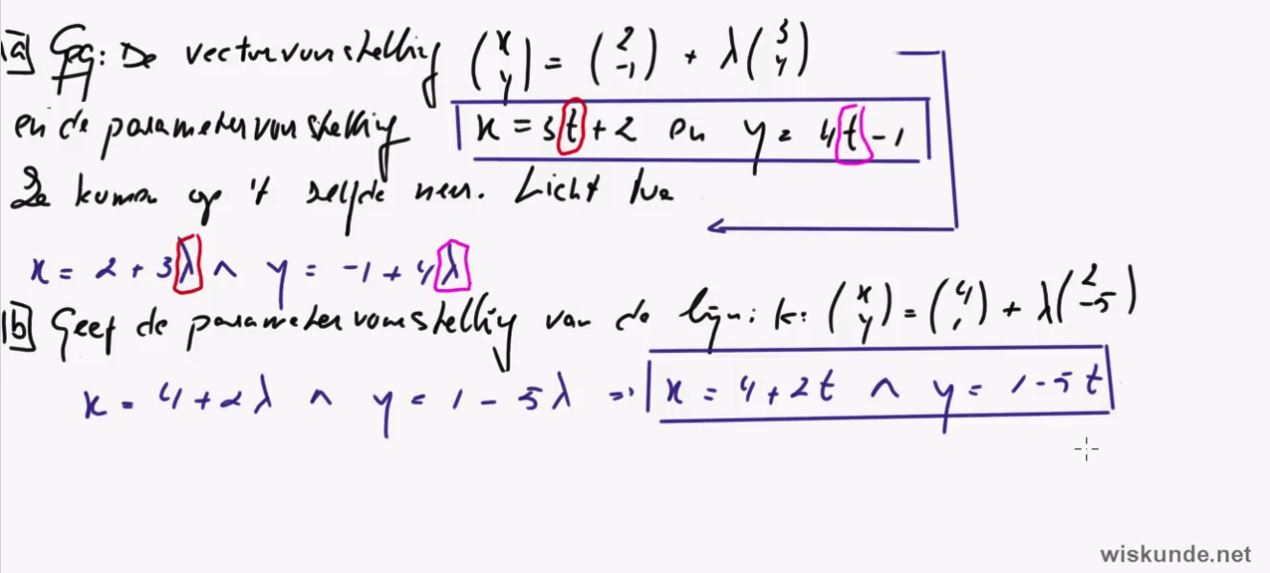 1a) Geg: De vectorvoorstelling (x y) = (2 -1) + λ(3 4)
en de parametervoorstelling x = 3t + 2 en y = 4t - 1
Ze komen op 't zelfde neer. Licht toe
x = 2 + 3λ ∧ y = -1 + 4λ
1b) Geef de parametervoorstelling van de lijn: k: (x y) = (4 1) + λ(2 -5)
x = 4 + 2λ ∧ y = 1 - 5λ => x = 4 + 2t ∧ y = 1 - 5t
wiskunde.net